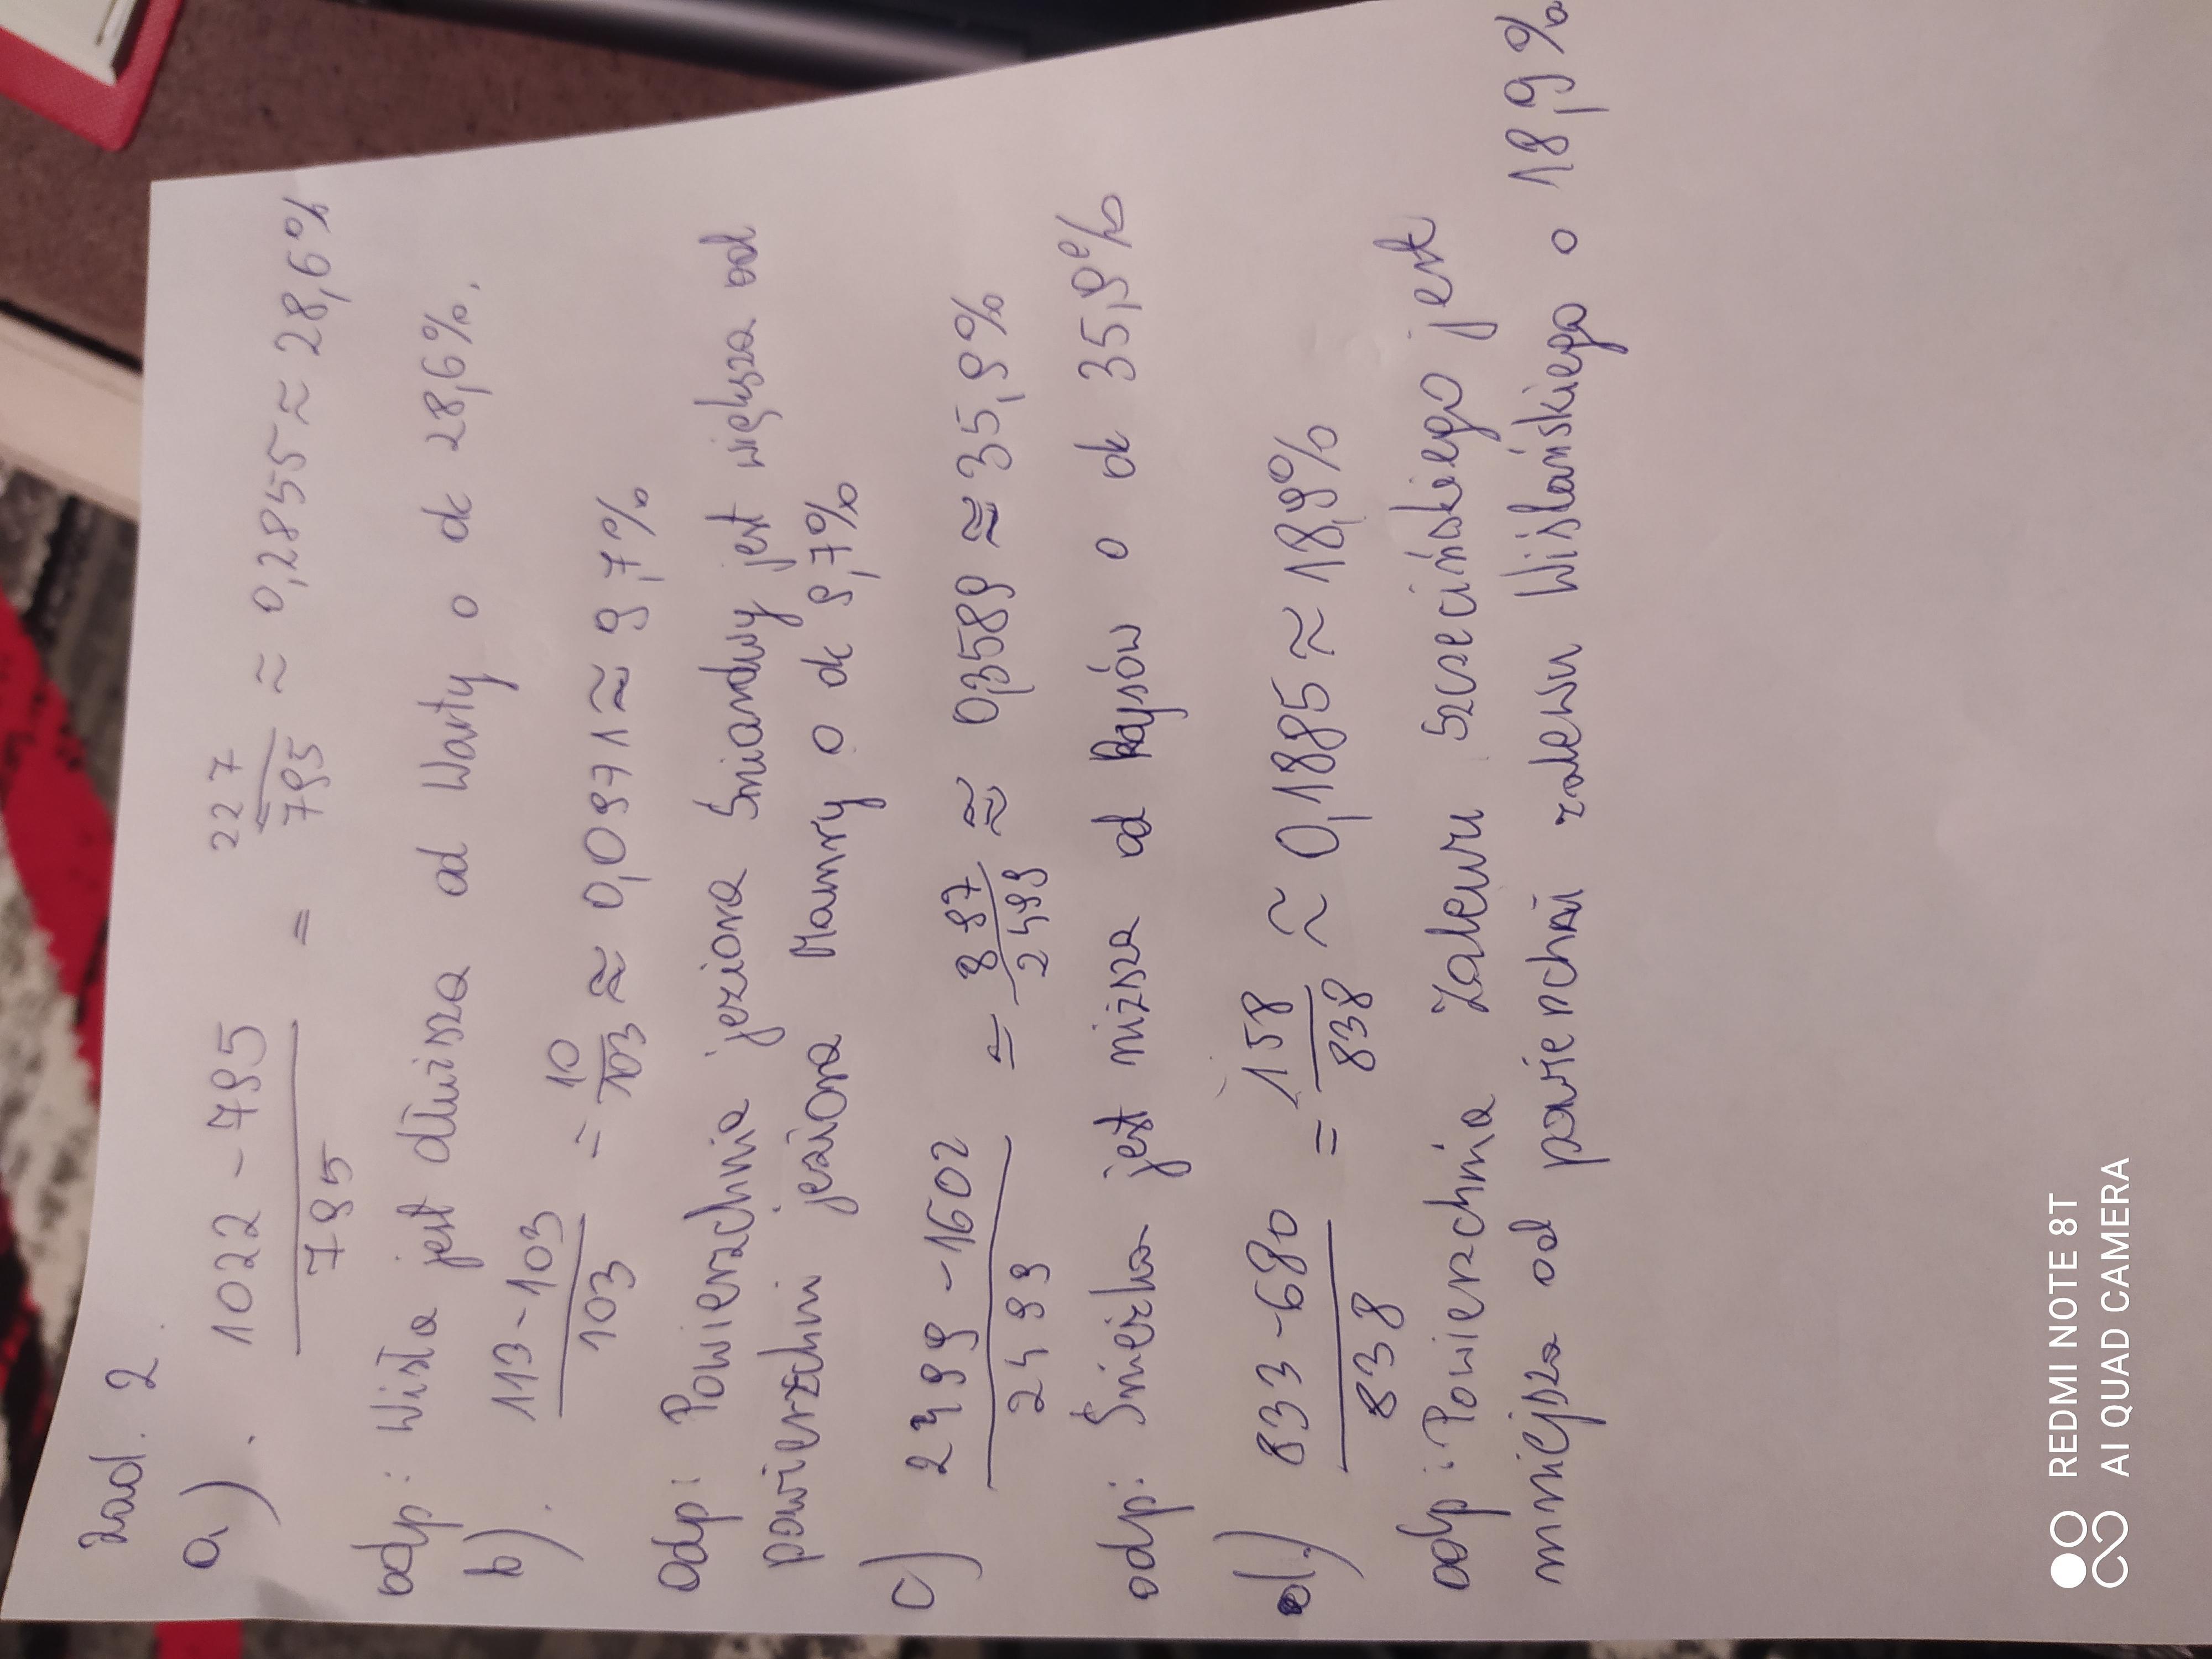 zad. 2.
a). 1022 - 795 / 795 = 227 / 795 ≈ 0,2855 ≈ 28,6%
odp: Wisła jest dłuższa od Warty o ok 28,6%.
b). 113 - 103 / 103 = 10 / 103 ≈ 0,0971 ≈ 9,7%
odp: Powierzchnia jeziora Śniardwy jest większa od
powierzchni jeziora Mamry o ok 9,7%
c) 2499 - 1602 / 2499 = 897 / 2499 ≈ 0,3589 ≈ 35,9%
odp: Śnieżka jest niższa od Rysów o ok 35,9%
d.) 833 - 680 / 838 = 158 / 838 ≈ 0,1885 ≈ 18,9%
odp: Powierzchnia Zalewu szczecińskiego jest
mniejsza od powierzchni zalewu Wiślańskiego o 18,9%
REDMI NOTE 8T
AI QUAD CAMERA